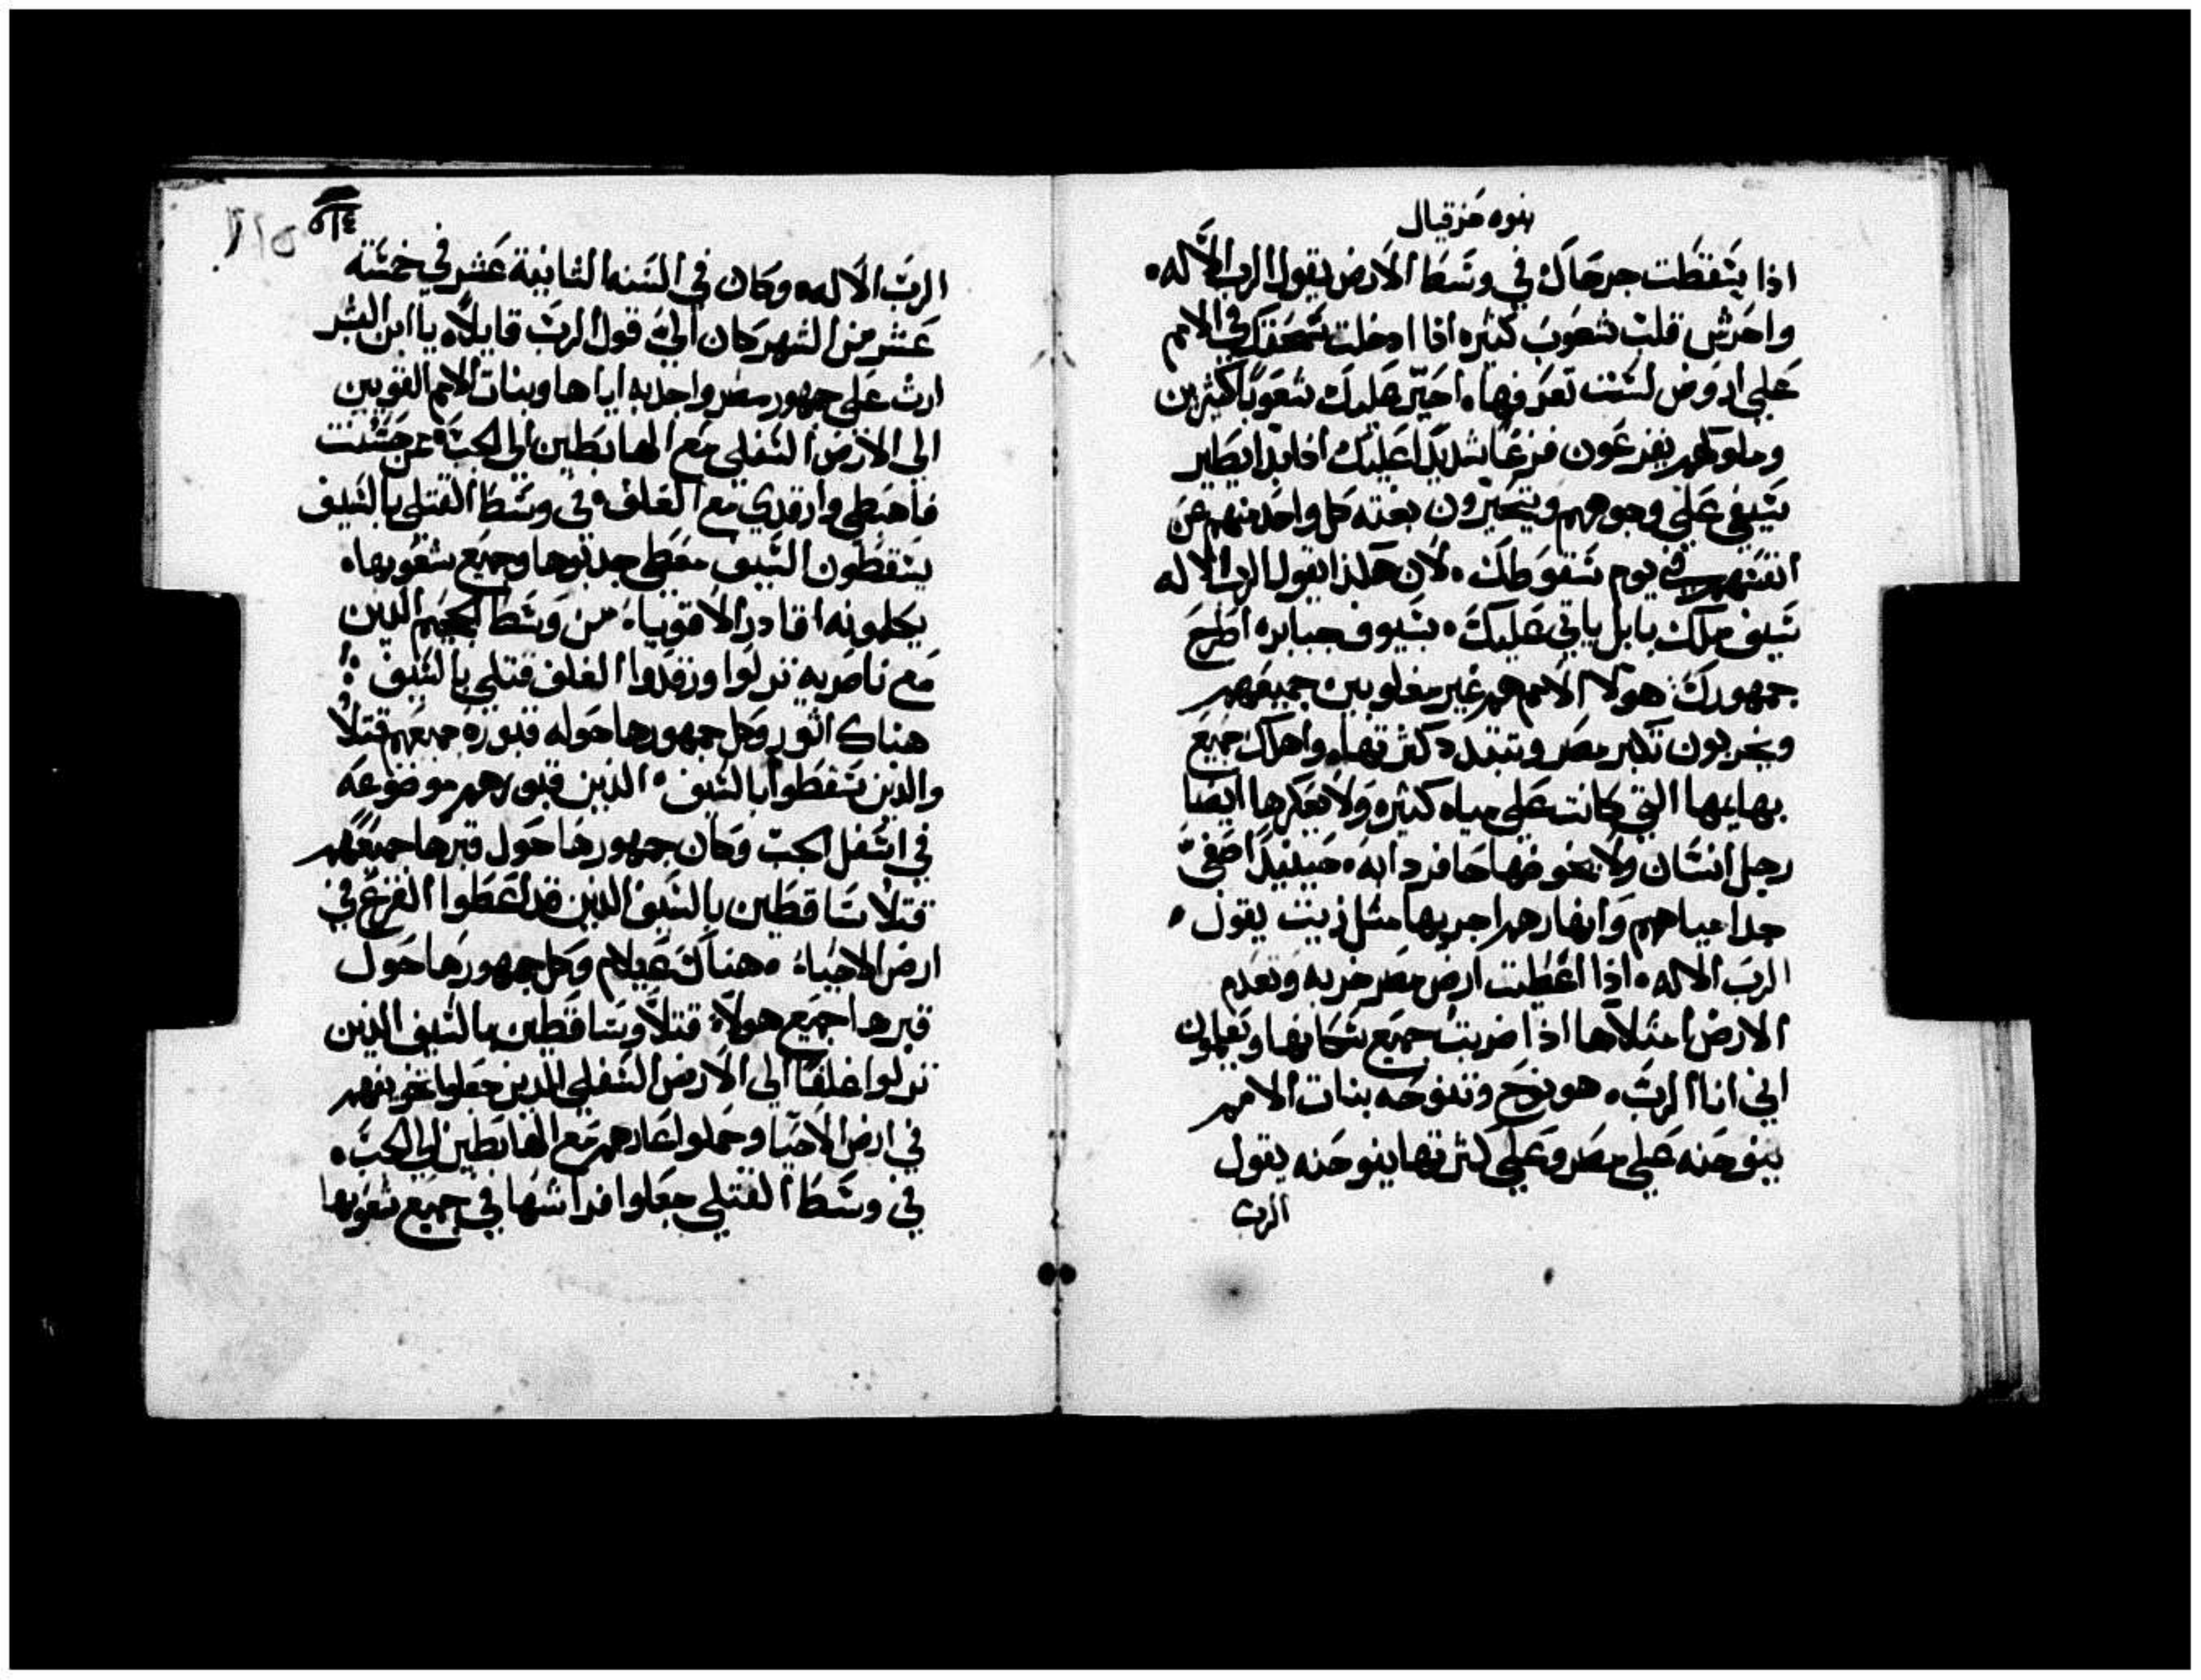 نبوه حزقيال
اذا يسقطت جرحاك في وسط الارض يقول الرب الاله
واحرش قلب شعوب كثيره اذا ادخلت سحقك في الامم
علي اروض لست تعرفها احير عليك شعوبا كثيرين
وملوكهم يفزعون فزعا شديدا عليك اذا بدا يطير
سيفي علي وجوههم ويتحيرون بغته كل واحد منهم عن
انفسهم في يوم سقوطك لان هكذا يقول الرب الاله
سيف ملك بابل ياتي عليك بسيوف جبابره اطرح
جمهورك هولا الامم هم غير مغلوبين جميعهم
ويخربون تكبر مصر وتتبدد كثرتها واهلك جميع
بهايمها التي كانت علي مياه كثيره ولا يعكرها ايضا
رجل انسان ولا يخوضها حافر دابه حينيذ اصفي
جدا مياههم وانهارهم اجريها مثل زيت يقول
الرب الاله اذا اعطيت ارض مصر خربه وتعدم
الارض امتلاها اذا ضربت جميع سكانها ويعلمون
اني انا الرب هو نوح وتنوحه بنات الامم
ينوحنه علي مصر وعلي كثرتها ينوحنه يقول
الرب
٥١٤
الرب الاله وكان في السنه الثانية عشر في خمسة
عشر من الشهر كان الي قول الرب قايلا يا ابن البشر
ارث علي جمهور مصر واجذبه اياها وبنات الامم القويين
الي الارض السفلي مع الهابطين الي الجب من حسنت
فاهبطي وارقدي مع الغلف في وسط القتلي بالسيف
يسقطون السيف معطي جدبوها وجميع شعوبها
يكلمونه اقادر الاقوياء من وسط الجحيم الذين
مع ناصريه نزلوا ورقدوا الغلف قتلي بالسيف
هناك اثور وكل جمهورها حوله قبوره جميعهم قتلا
والذين سقطوا بالسيف الذين قبورهم موضوعه
في اسفل الجب وكان جمهورها حول قبرها جميعهم
قتلا ساقطين بالسيف الذين قد اعطوا الفزع في
ارض الاحياء هناك عيلام وكل جمهورها حول
قبرها جميع هولاء قتلا وساقطين بالسيف الذين
نزلوا غلفا الي الارض السفلي الذين جعلوا تخويفهم
في ارض الاحيا وحملوا عارهم مع الهابطين الي الجب
في وسط القتلي جعلوا فراشها في جميع شعوبها